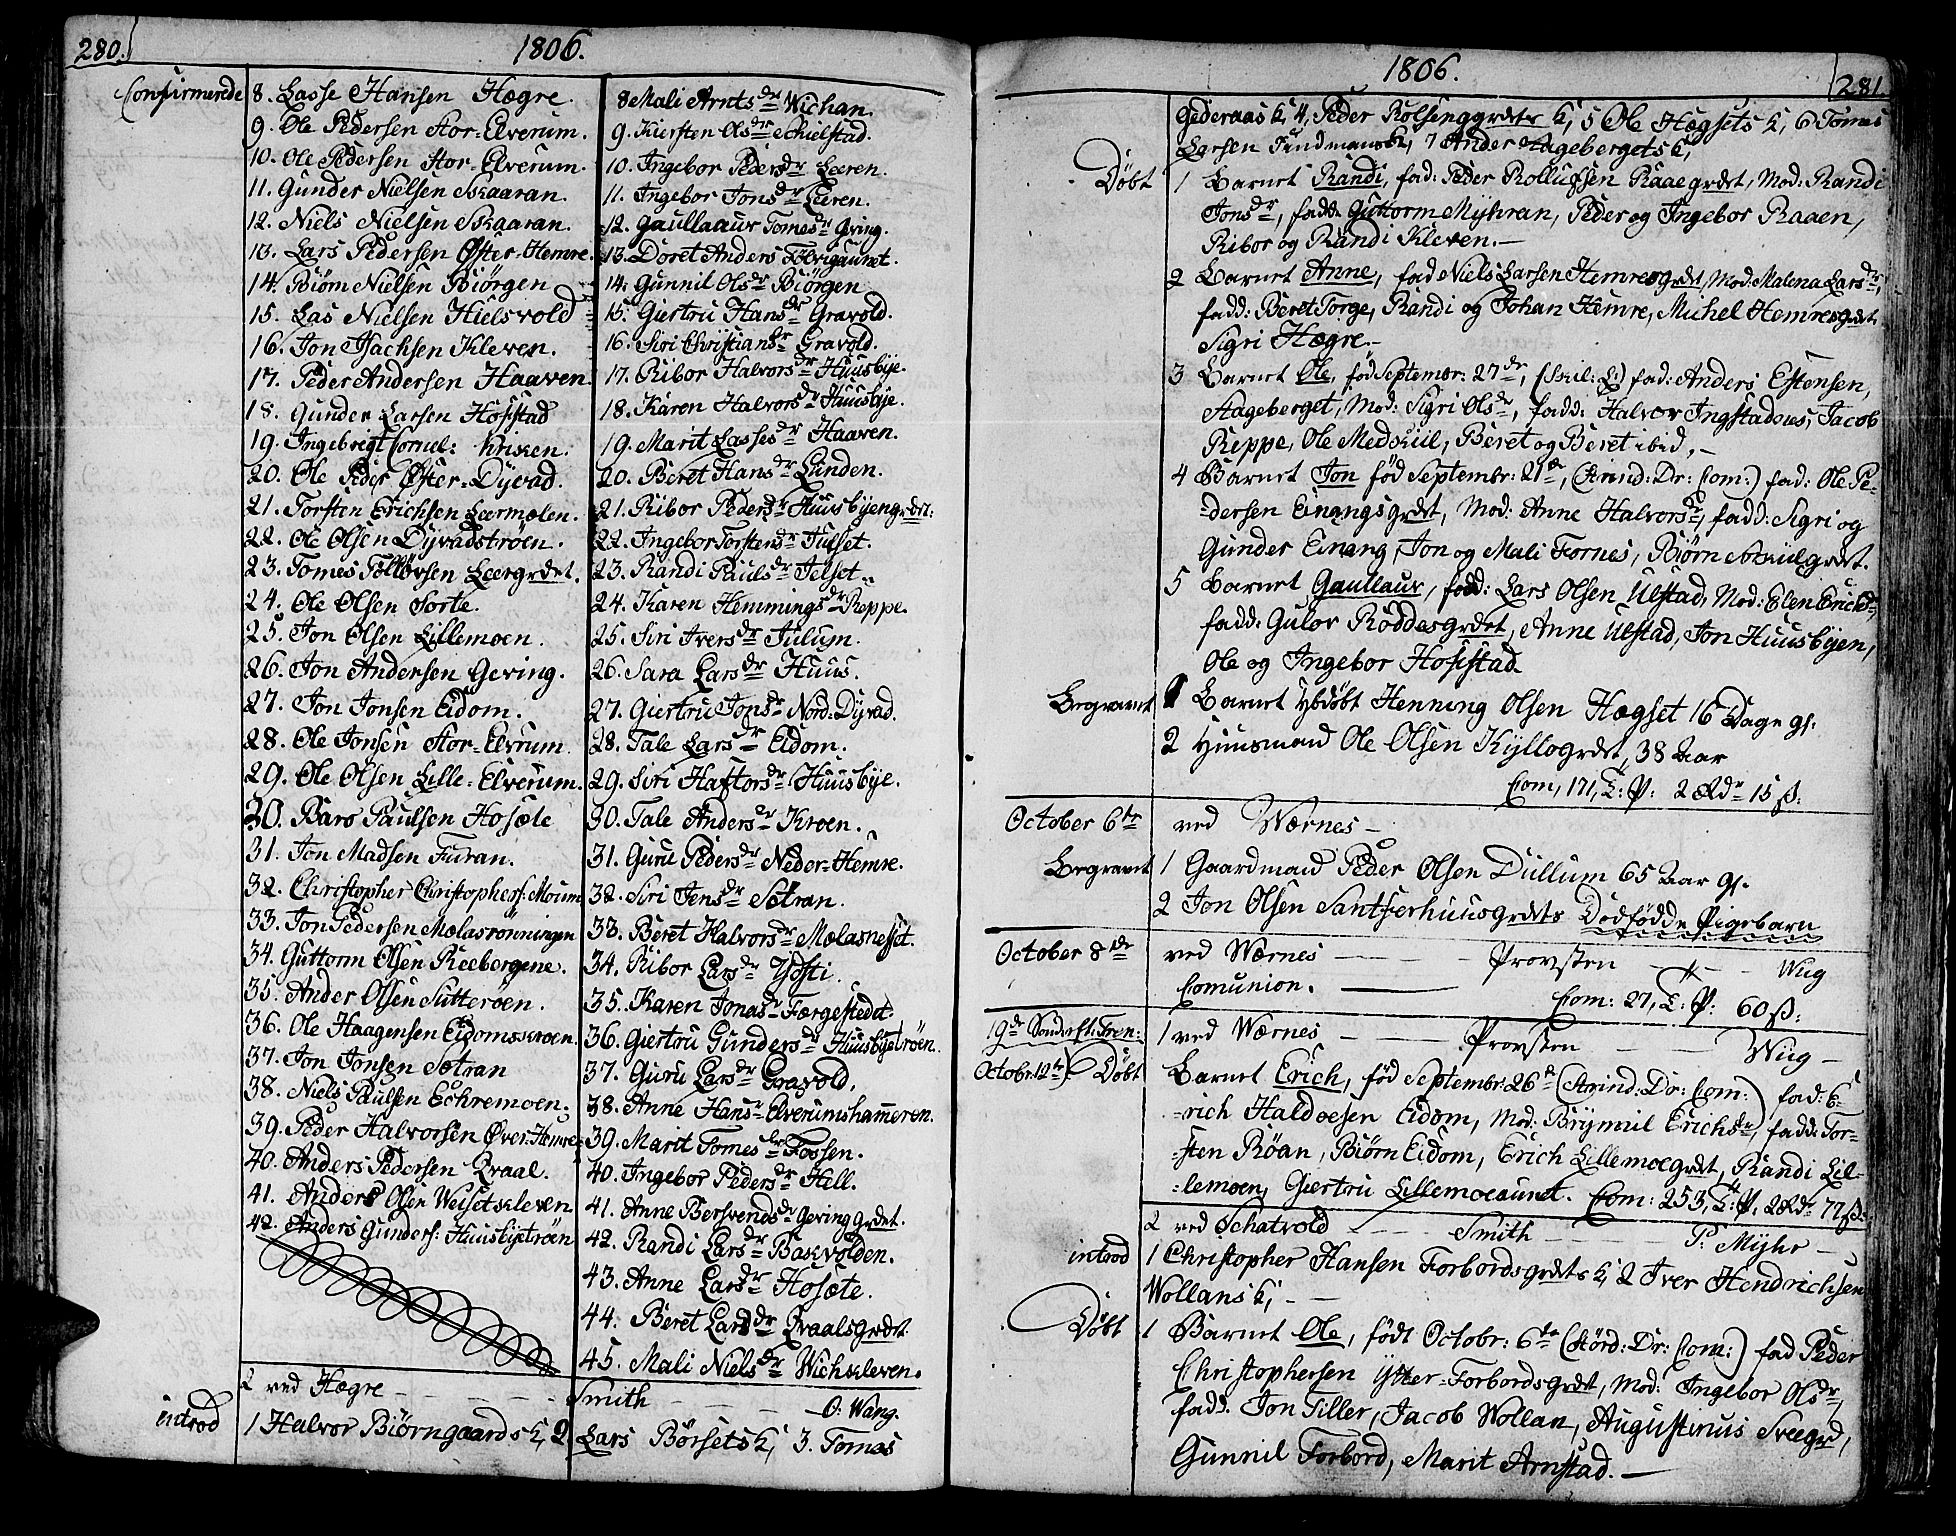 280.
1806.
Confirmerede
8. Lasse Hansen Hægre.
9. Ole Pedersen Stor-Elverum.
10. Ole Pedersen Stor-Elverum.
11. Gunder Nielsen Skaaran.
12. Niels Nielsen Skaaran.
13. Lars Pedersen Øster-Hemre.
14. Biørn Nielsen Biörgen
15. Las Nielsen Hielsvold
16. Jon Isachsen Kleven.
17. Peder Andersen Haaven
18. Gunder Larsen Hofstad
19. Ingebrigt Cornel: Krisken.
20. Ole Peder Øster-Dyvad.
21. Torsten Erichsen Leermælen.
22. Ole Olsen Dyvadstrøen.
23. Tomes Tollövsen Leergrdet.
24. Ole Olsen Sorte.
25. Jon Olsen Lillemoen.
26. Jon Andersen Geving.
27. Jon Jonsen Eidom.
28. Ole Jonsen Stor-Elvrum
29. Ole Olsen Lille-Elverum.
30. Baro Paulsen Hosæte
31. Jon Madsen Furan.
32. Christopher Christophers: Mouim
33. Jon Pedersen Mælasrønningen
34. Guttorm Olsen Reebergene.
35. Ander Olsen Sutterøen.
36. Ole Haagensen Eidomskroen
37. Jon Jonsen Sætran
38. Niels Paulsen Echremoen.
39. Peder Halvorsen Øver-Hemre
40. Anders Pedersen Qvaal.
41. Anders Olsen Weisetskleven
42. Anders Gunders: Huusbyetröen
8 Mali Arntsdr Wichan.
9. Kiersten Olsdr Skielstad.
10. Ingebor Pedersdr Leeren.
11. Ingebor Jonsdr Leeren.
12. Gaullaaur Tomesdr Gving.
13. Doret Anders Tövigaunet.
14. Gunnil Olsdr Biörgen
15. Giertru Hansdr Gravold.
16. Siri Christiansdr Gravold.
17. Ribor Halvorsdr Huusbye.
18. Karen Halvorsdr Huusbye.
19. Marit Lassesdr Haaven.
20. Beret Hansdr Lunden.
21. Ribor Pedersdr Huusbyengrdet:
22. Ingebor Torstensdr Julset.
23. Randi Paulsdr Jelset
24. Karen Hemmingsdr Reppe.
25. Siri Iversdr Julum.
26. Sara Larsdr Huus.
27. Giertru Jonsdr Nord-Dyvad.
28. Tale Larsdr Eidom.
29. Siri Haftorsdr Huusbye.
30. Tale Andersdr Kroen.
31. Guru Pedersdr Neder-Hemre.
32. Siri Jensdr Sætran.
33. Beret Halvorsdr Mælasnesset.
34. Ribor Larsdr Ydsti.
35. Karen Jonasdr Færgestedet.
36. Giertru Gundersdr Huusbyetröen.
37. Guru Larsdr Gravold.
38. Anne Hansdr Elverumshammeren.
39. Marit Tomesdr Fossen.
40. Ingebor Pedersdr Hell.
41. Anne Bersvendsdr Geving Grdet.
42. Randi Larsdr Baskvolden.
43. Anne Larsdr Hosæte.
44. Beret Larsdr Qvaalsgrdet.
45. Mali Nielsdr Wichskleven.
2 ved Hægre - - - Smith - - - O: Wang.
introd
1 Halvor Biørngaards K, 2 Lars Børsets K, 3. Tomas
1806.
281
Gederaas K, 4, Peder Rolsenggrdets K, 5 Ole Hægsets K, 6 Tomes
Larsen Fundmans K, 7 Ander Stagebergets K,
Døbt
1 Barnet Randi, fad: Peder Rollufsen Raaegrdet, Mod: Randi
Jonsdr, fadd: Guttorm Myhran, Peder og Ingebor Raaen,
Ribor og Randi Kleven.
2 Barnet Anne, fad Niels Larsen Hemresgrdet, Mod: Malena Larsdr,
fadd: Beret Torge, Randi og Johan Hemre, Michel Hemresgrdet
Sigri Hægre.
3 Barnet Ole, fød Septembr: 27de, fad: Anders Estensen,
Stageberget, Mod: Sigri Olsdr, fadd: Halvor Ingstadnes, Jacob
Reppe, Ole Medskiil, Beret og Beret ibid.
4 Barnet Jon fød Septembr: 21de, (Strind: Dr: Com:) fad: Ole Pe-
dersen Einangsgrdet, Mod: Anne Halvorsdr, fadd: Sigri og
Gunder Einang, Jon og Mali Fornes, Biørn Schielgrdet.
5 Barnet Gaullaur, fad: Lars Olsen Ulstad, Mod: Elen Erichsdr,
fadd: Gulor Röddesgrdet, Anne Ulstad, Jon Huusbyen,
Ole og Ingebor Hofstad.
Begravet
1 Barnet Hidøbt Henning Olsen Hægset 16 Dage gl.
2 Huusmand Ole Olsen Kyllogrdet, 38 Aar
Com, 171, T: P: 2 Rdr 15 ß:
October 6te
ved Wærnes
Begravet
1 Gaardmand Peder Olsen Dullum 65 Aar gl.
2 Jon Olsen Santferhuusgrdets Dødfødde Pigebarn
October 8de
ved Wærnes - - - Provsten - - - Wug
Comunion.
Com: 27, T: P: 60 ß:
19de Sønd: eft: Tren:
1 ved Wærnes - - - Provsten - - - Wug
Octobr: 12te). Døbt
Barnet Erich, fød Septembr: 26de (Strind: Dr: Com:) fad: E-
rich Haldoesen Eidom, Mod: Brynnil Erichsdr, fadd: Tor-
sten Röan, Biørn Eidom, Erich Lillemoegrdet, Randi Lil-
lemoen, Giertru Lillemoeaunet. Com: 253, T: P. 2 Rdr 77 ß:
2 ved Schatvold - - - Smith - - - P: Myhr
introd
1 Christopher Hansen Forbordsgrdets K, 2 Iver Hendrichsen
Wollans K,
Døbt
1 Barnet Ole, født Octobr: 6te (Störd: Dr: Com:) fad Peder
Christophersen Ytter-Forbordsgrdet, Mod: Ingebor Olsdr,
fadd: Jon Tiller, Jacob Wollan, Augustinus Sveegrd,
Gunnil Forbord, Marit Arnstad.